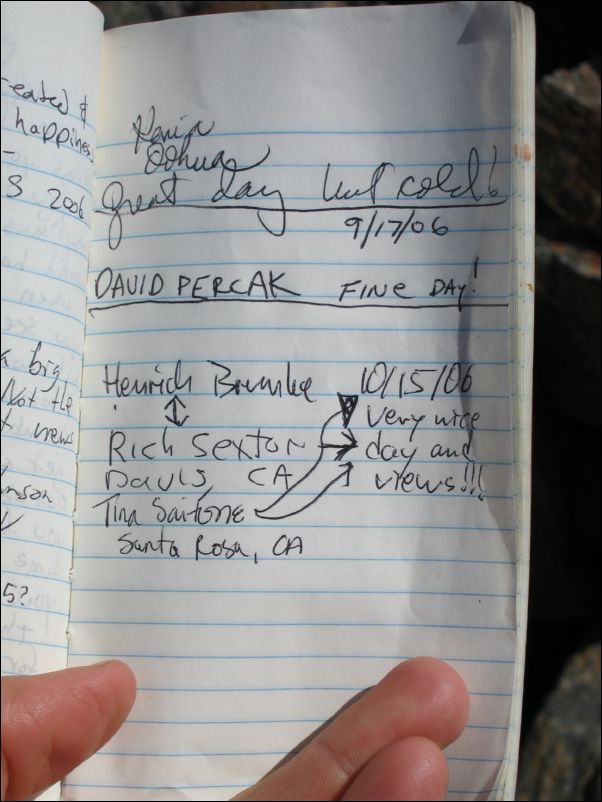 reated &
happines
S 2006
big
Not the
views
nson
5?
Kevin
Joshua
Great day but cold!
9/17/06
DAVID PERCAK FINE DAY!
Henrich 10/15/06
very nice
Rich Sexton day and
Davis, CA views!!!
Tina Saitone
Santa Rosa, CA